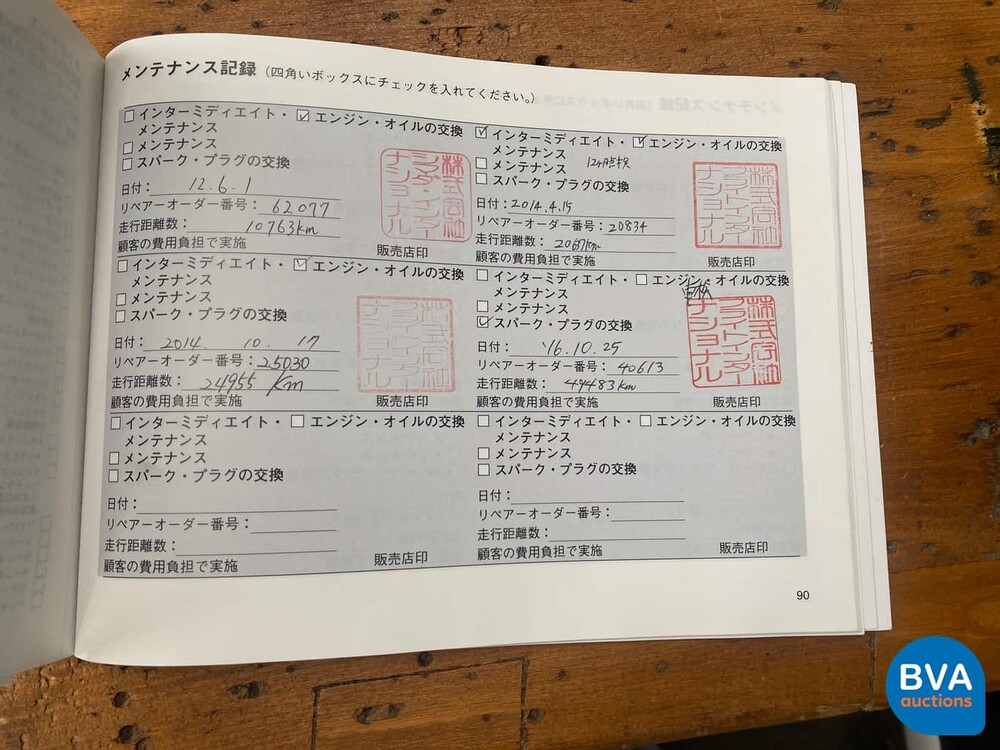 メンテナンス記録（四角いボックスにチェックを入れてください。）
インターミディエイト・ エンジン・オイルの交換
メンテナンス
メンテナンス
スパーク・プラグの交換
日付： 12.6.1
リペアーオーダー番号： 62077
走行距離数： 10763km
顧客の費用負担で実施
販売店印
インターミディエイト・ エンジン・オイルの交換
メンテナンス
メンテナンス 12ヶ月点検
スパーク・プラグの交換
日付：2014.4.15
リペアーオーダー番号：20834
走行距離数：
顧客の費用負担で実施
株式会社
ブライトインター
ナショナル
販売店印
インターミディエイト・ エンジン・オイルの交換
メンテナンス
メンテナンス
スパーク・プラグの交換
日付： 2014. 10. 17
リペアーオーダー番号：25030
走行距離数： 24955 Km
顧客の費用負担で実施
株式会社
ブライトインター
ナショナル
販売店印
インターミディエイト・ エンジン・オイルの交換
メンテナンス
メンテナンス
スパーク・プラグの交換
車検
日付： '16.10.25
リペアーオーダー番号： 40613
走行距離数： 49483km
顧客の費用負担で実施
株式会社
ブライトインター
ナショナル
販売店印
インターミディエイト・ エンジン・オイルの交換
メンテナンス
メンテナンス
スパーク・プラグの交換
日付：
リペアーオーダー番号：
走行距離数：
顧客の費用負担で実施
販売店印
インターミディエイト・ エンジン・オイルの交換
メンテナンス
メンテナンス
スパーク・プラグの交換
日付：
リペアーオーダー番号：
走行距離数：
顧客の費用負担で実施
販売店印
90
BVA
auctions